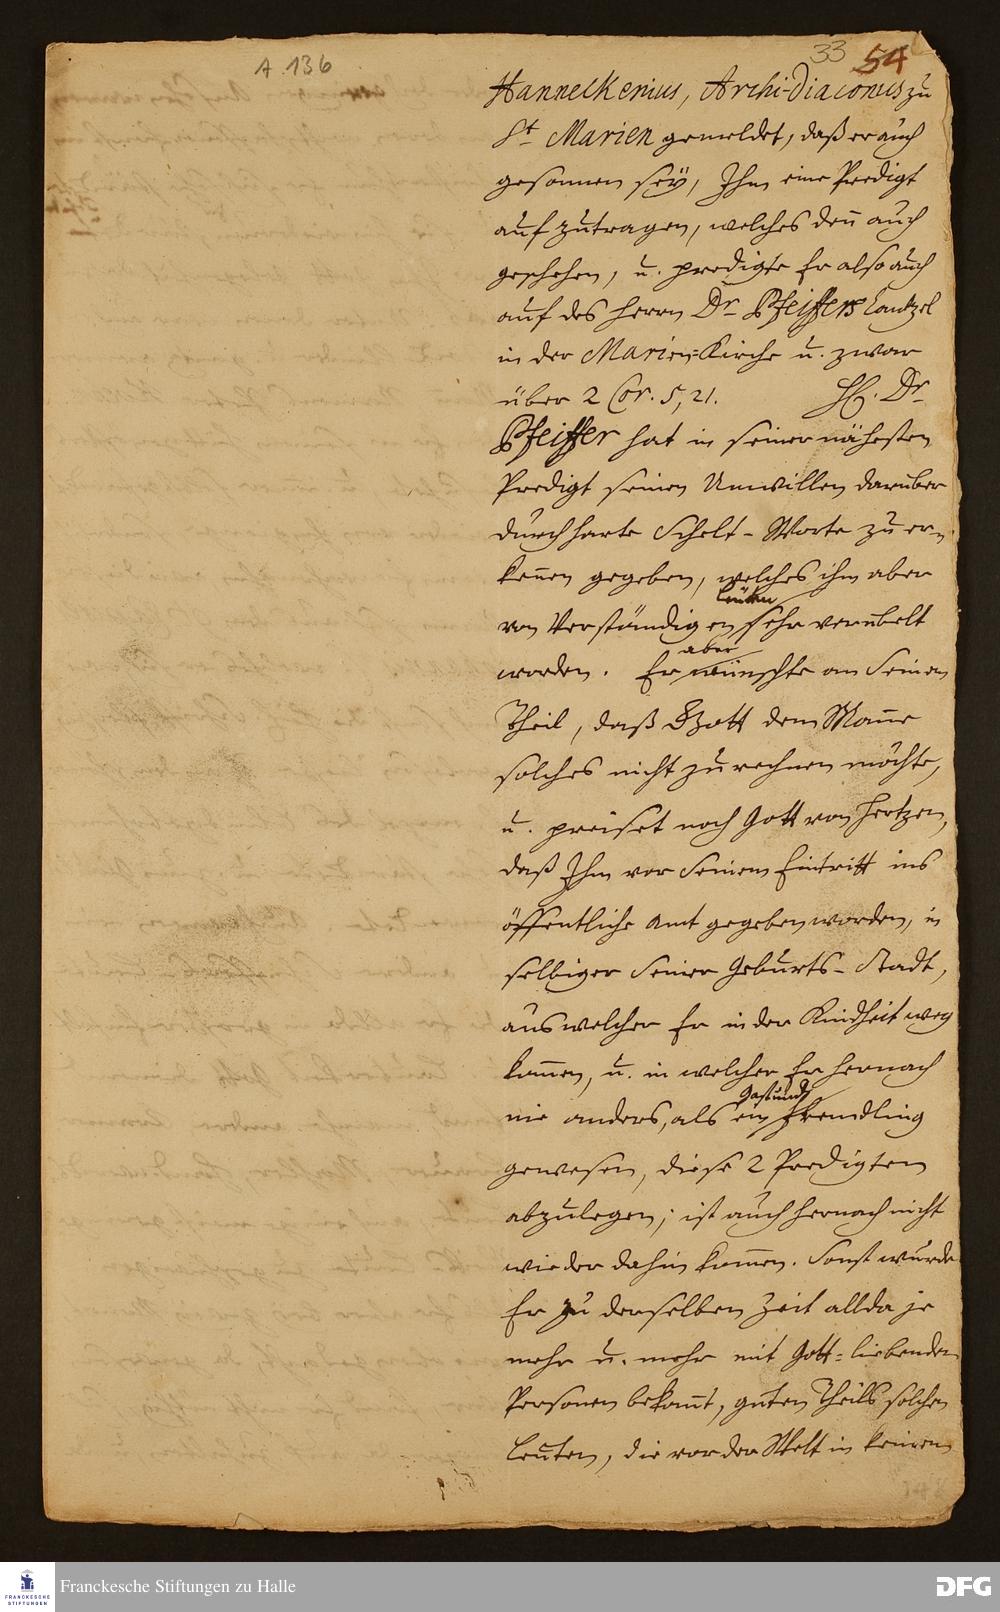 A. 136
33 54
Hanneckenius, Archi-Diaconus zu
St. Marien gemeldet, daß er auch
gesonnen sey, Ihm eine Predigt
auf zutragen, welches den̄ auch
geschehen, u. predigte Er also auch
auf des Herrn Dr. Pfeiffers Cantzel
in der Marien-Kirche u. zwar
über 2 Cor. 5, 21. H. Dr.
Pfeiffer hat in seiner nähesten
Predigt seinen Unwillen darüber
durch harte Schelt-Worte zu er-
ken̄en gegeben, welches ihm aber
von Verständigen Leuten sehr verübelt
worden. Er aber wünschte an Seinem
Theil, daß Gott dem Man̄e
solches nicht zurechnen möchte,
u. preiset noch Gott von Hertzen,
daß Ihm vor Seinem Eintritt ins
öffentliche Amt gegeben worden, in
selbiger Seiner Geburts-Stadt,
aus welcher Er in der Kindheit weg
kom̄en, u. in welcher Er hernach
nie anders, als ein Gast und Fremdling
gewesen, diese 2 Predigten
abzulegen; ist auch hernach nicht
wieder dahin kom̄en. Sonst wurde
Er zu derselben Zeit allda je
mehr u. mehr mit Gott-liebenden
Personen bekan̄t, guten Theils solchen
Leuten, die vor der Welt in keinem
Franckesche Stiftungen zu Halle
FRANCKESCHE
STIFTUNGEN
DFG